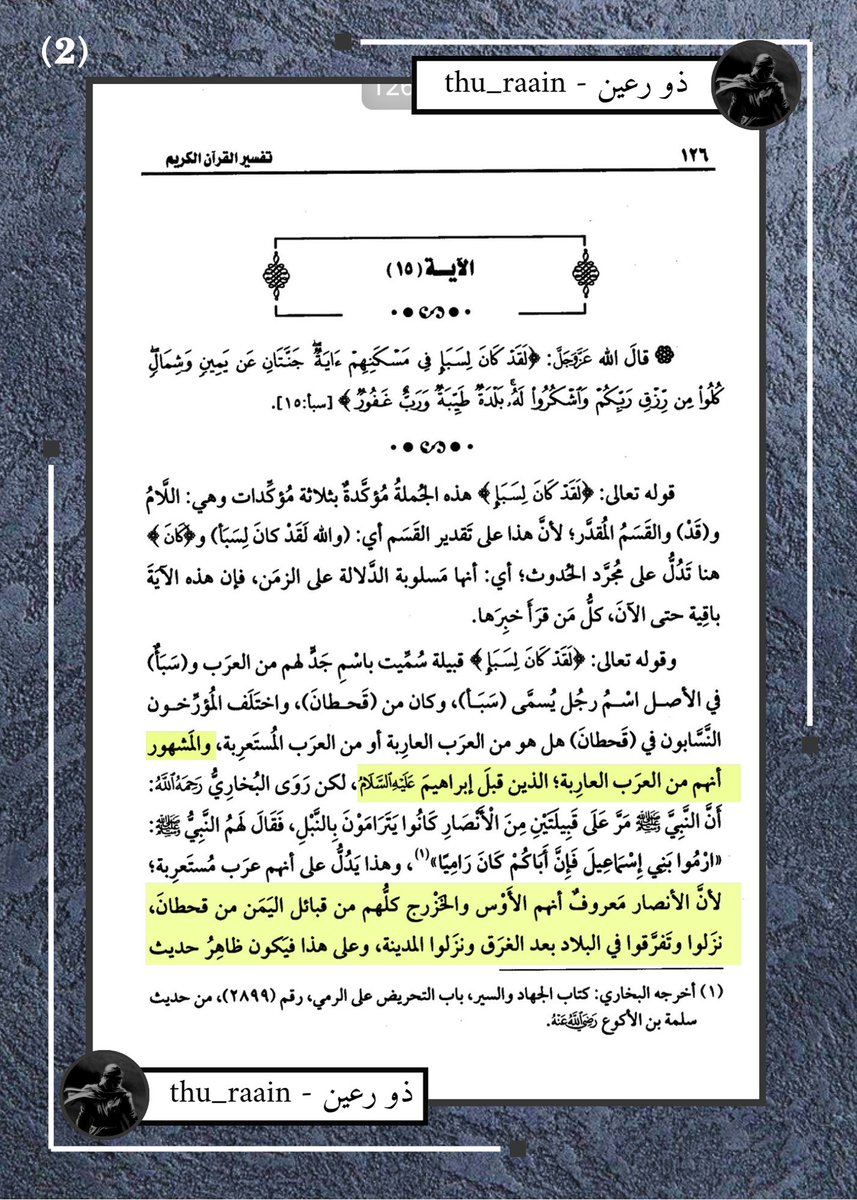 (2)
thu_raain - ذو رعين
126
١٢٦
تفسير القرآن الكريم
الآيــة (١٥)
قالَ الله عَزَّوَجَلَّ: ﴿لَقَدْ كَانَ لِسَبَإٍ فِي مَسْكَنِهِمْ ءَايَةٌ ۖ جَنَّتَانِ عَن يَمِينٍ وَشِمَالٍ ۖ
كُلُوا۟ مِن رِّزْقِ رَبِّكُمْ وَٱشْكُرُوا۟ لَهُۥ ۚ بَلْدَةٌ طَيِّبَةٌ وَرَبٌّ غَفُورٌ﴾ [سبأ:١٥].
قوله تعالى: ﴿لَقَدْ كَانَ لِسَبَإٍ﴾ هذه الجُملةُ مُؤكَّدةٌ بثلاثة مُؤكِّدات وهي: اللَّامُ
و(قَدْ) والقَسَمُ المُقدَّر؛ لأنَّ هذا على تَقدير القَسَم أي: (والله لَقَدْ كانَ لِسَبَأ) و﴿كَانَ﴾
هنا تَدُلُّ على مُجرَّد الحُدوث؛ أي: أنها مَسلوبة الدَّلالة على الزمَن، فإن هذه الآيَةَ
باقِية حتى الآنَ، كلُّ مَن قرَأَ خبرَها.
وقوله تعالى: ﴿لَقَدْ كَانَ لِسَبَإٍ﴾ قبيلة سُمِّيت باسْمِ جَدٍّ لهم من العرَب و(سَبَأٌ)
في الأصل اسْمُ رجُل يُسمَّى (سَبَـأ)، وكان من (قَحـطانَ)، واختَلَف المُؤرِّخـون
النَّسَّابون في (قَحطانَ) هل هو من العرَب العارِبة أو من العرَب المُستَعرِبة، والمَشهور
أنهم من العرَب العارِبة؛ الذين قبلَ إبراهيمَ عَلَيْهِ السَّلَامُ، لكن رَوَى البُخاريُّ رَحِمَهُ اللَّهُ:
أَنَّ النَّبِيَّ ﷺ مَرَّ عَلَى قَبِيلَتَيْنِ مِنَ الْأَنْصَارِ كَانُوا يَتَرَامَوْنَ بِالنَّبْلِ، فَقَالَ لَهُمُ النَّبِيُّ ﷺ:
«ارْمُوا بَنِي إِسْمَاعِيلَ فَإِنَّ أَبَاكُمْ كَانَ رَامِيًا»(١)، وهذا يَدُلُّ على أنهم عرَب مُستَعرِبة؛
لأنَّ الأنصار مَعروفٌ أنهم الأَوْس والخَزْرج كلُّهم من قبائل اليَمَن من قحطانَ،
نزَلوا وتَفرَّقوا في البلاد بعد الغرَق ونزَلوا المدينة، وعلى هذا فيَكون ظاهِرُ حديث
(١) أخرجه البخاري: كتاب الجهاد والسير، باب التحريض على الرمي، رقم (٢٨٩٩)، من حديث
سلمة بن الأكوع رَضِيَ اللَّهُ عَنْهُ.
thu_raain - ذو رعين